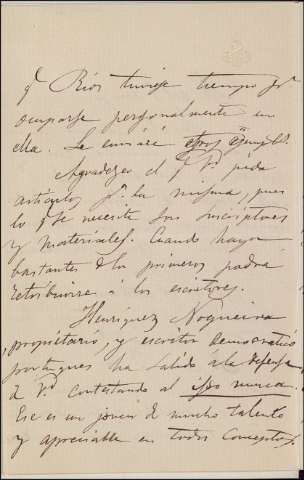 q Rios tuviese tiempo pa
ocuparse personalmente en
ella. Le enviaré otros
Agradezco el q Vd. pida
artículos pa la misma, pues
lo q se necesita son suscriptores
y materiales. Cuando hayan
bastantes de los primeros podrá
retribuirse á los escritores.
Henriquez Nogueira
, propietario, y escritor democratico
portugues ha salido á la defensa
de Vd. contestando al Ibo nunca.
Ese es un joven de mucho talento
y apreciable en todos conceptos.